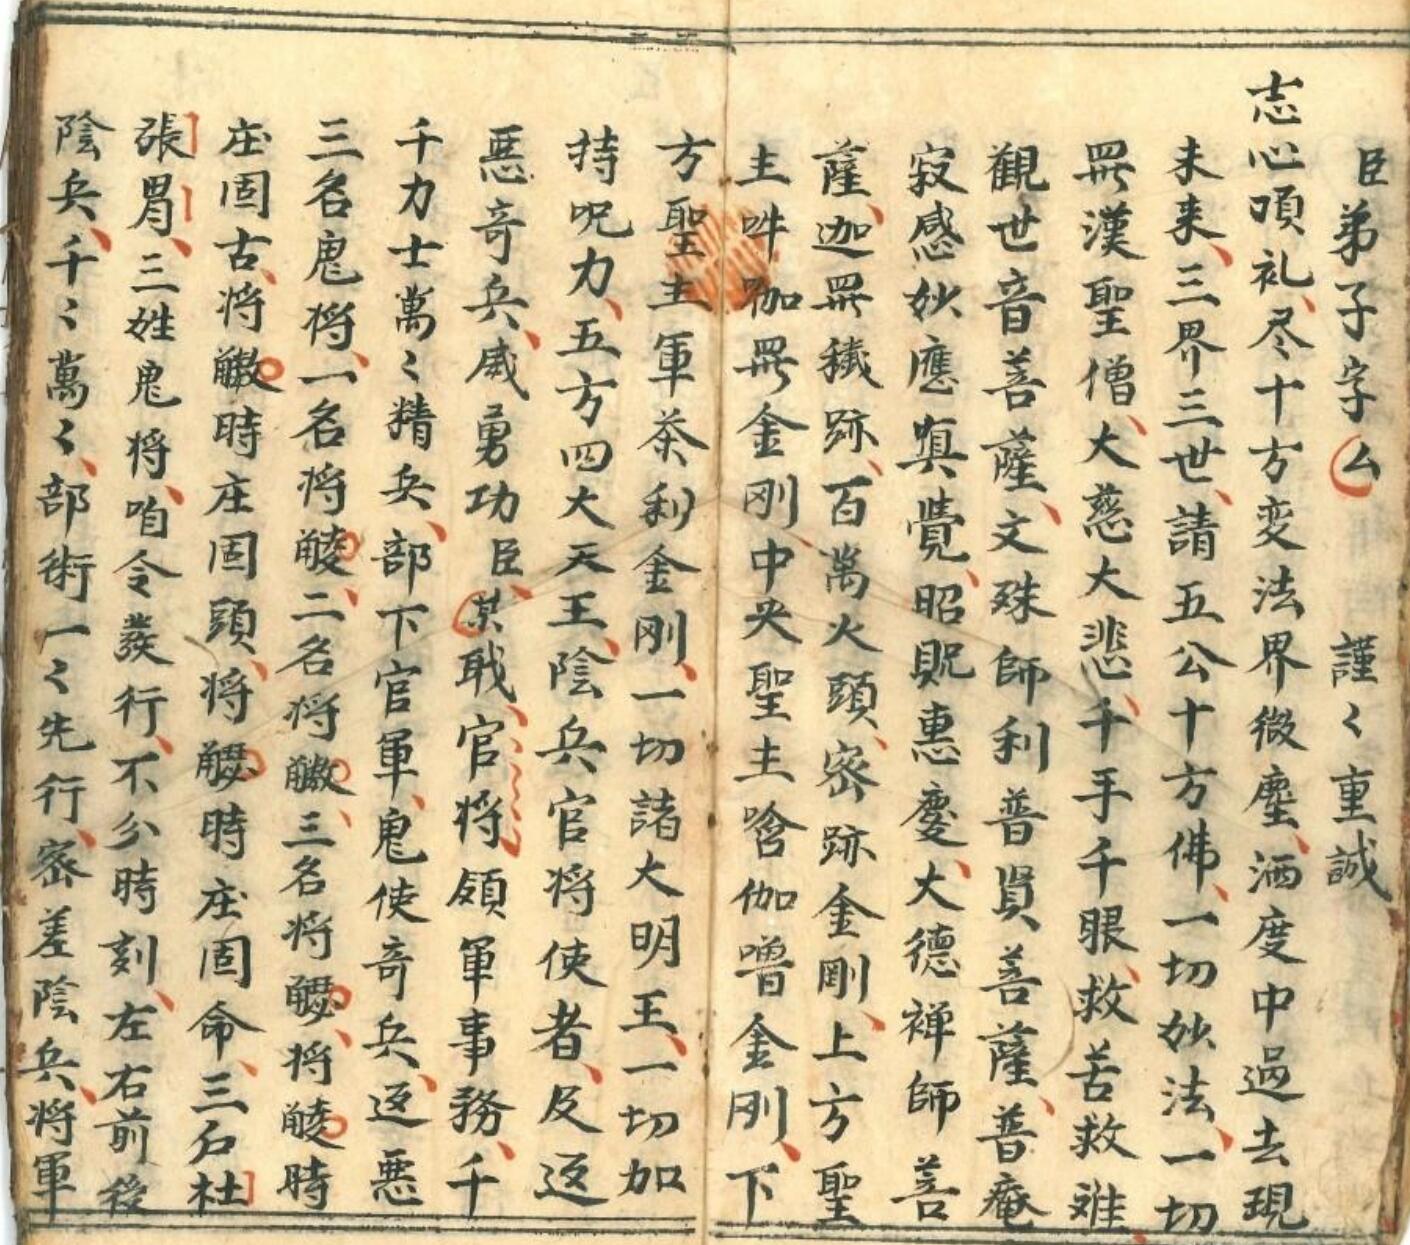 臣弟子字厶 謹〻重誠
志心頂礼尽十方变法界微塵洒度中過去現
未来三界三世請五公十方佛一切妙法一切
羅漢聖僧大慈大悲千手千眼救苦救难
觀世音菩薩文殊師利普賢菩薩普庵
寂感妙應真覺昭貺惠慶大德禅師菩
薩迦羅穢跡百萬火頭密跡金剛上方聖
主吽咖羅金刚中央聖主唅伽嚕金刚下
方聖主軍荼利金刚一切諸大明王一切加
持呪力五方四大天王陰兵官将使者及这
惡奇兵威勇功臣某戰官将領軍事務千
千力士萬〻精兵部下官軍鬼使奇兵这惡
三名鬼将一名将二名将三名将将時
庄固古将時庄固頭将時庄固命三名杜
張冐三姓鬼将咱令發行不分時刻左右前後
陰兵千〻萬〻部術一〻先行密差陰兵将軍